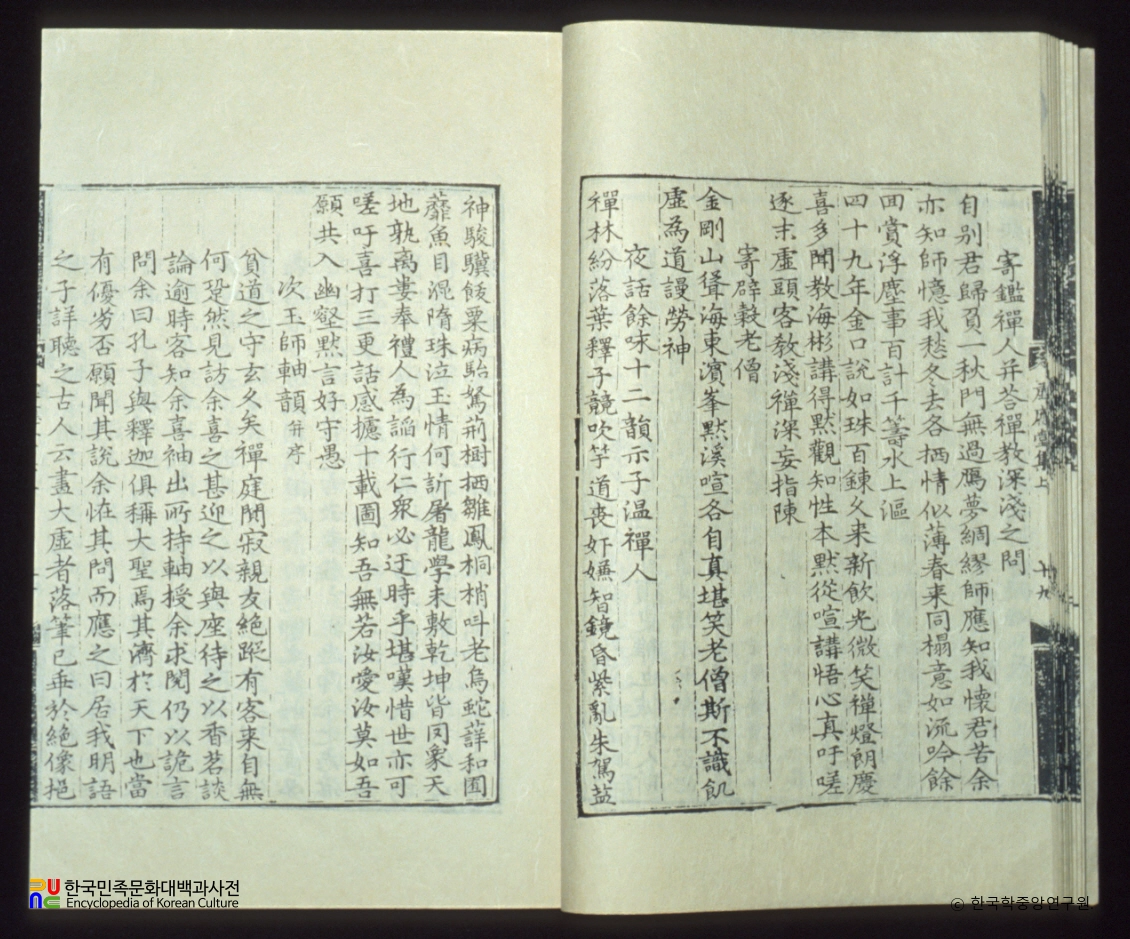 寄鑑禪人并荅禪教深淺之問
自别君歸頁一秋門無過鴈夢綢繆師應知我懷君苦余
亦知師憶我愁冬去各栖情似薄春来同榻意如流吟餘
囬賞浮塵事百計千籌水上漚
四十九年金口說如珠百鍊久来新飲光微笑禪燈朗慶
喜多聞教海彬講得默觀知性本默從喧講悟心真吁嗟
逐末虛頭客教淺禪深妄指陳
寄辟穀老僧
金剛山聳海東濱峯默溪喧各自真堪笑老僧斯不識飢
虛為道謾勞神
夜話餘味十二韻示子温禪人
禪林紛落葉釋子競吹竽道喪奸嫌智鏡昏紫亂朱駕盐
神駿驥餧粟病駘駑荊樹栖雛鳳桐梢叫老烏蛇蘀和囿
蘼魚目混隋珠泣玉情何訢屠龍學未敷乾坤皆罔象天
地孰离婁奉禮人為謟行仁衆必迂時乎堪嘆惜世亦可
嗟吁喜打三更話感攄十載圖知吾無若汝愛汝莫如吾
願共入幽壑默言好守愚
次玉師軸韻并序
貧道之守玄久矣禪庭閴寂親友絕蹤有客来自無
何跫然見訪余喜之甚迎之以與座待之以香茗談
論逾時客知余喜袖出所持軸授余求閱仍以詭言
問余曰孔子與釋迦俱稱大聖焉其濟於天下也當
有優劣否願聞其說余恠其問而應之曰居我明語
之子詳聽之古人云畫大虛者落筆已乖於絕像挹
集上
十九
한국민족문화대백과사전
Encyclopedia of Korean Culture
© 한국학중앙연구원